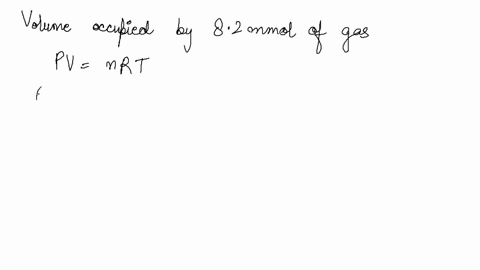 Volume occupied by 8.2 mmol of gas
PV = nRT
(